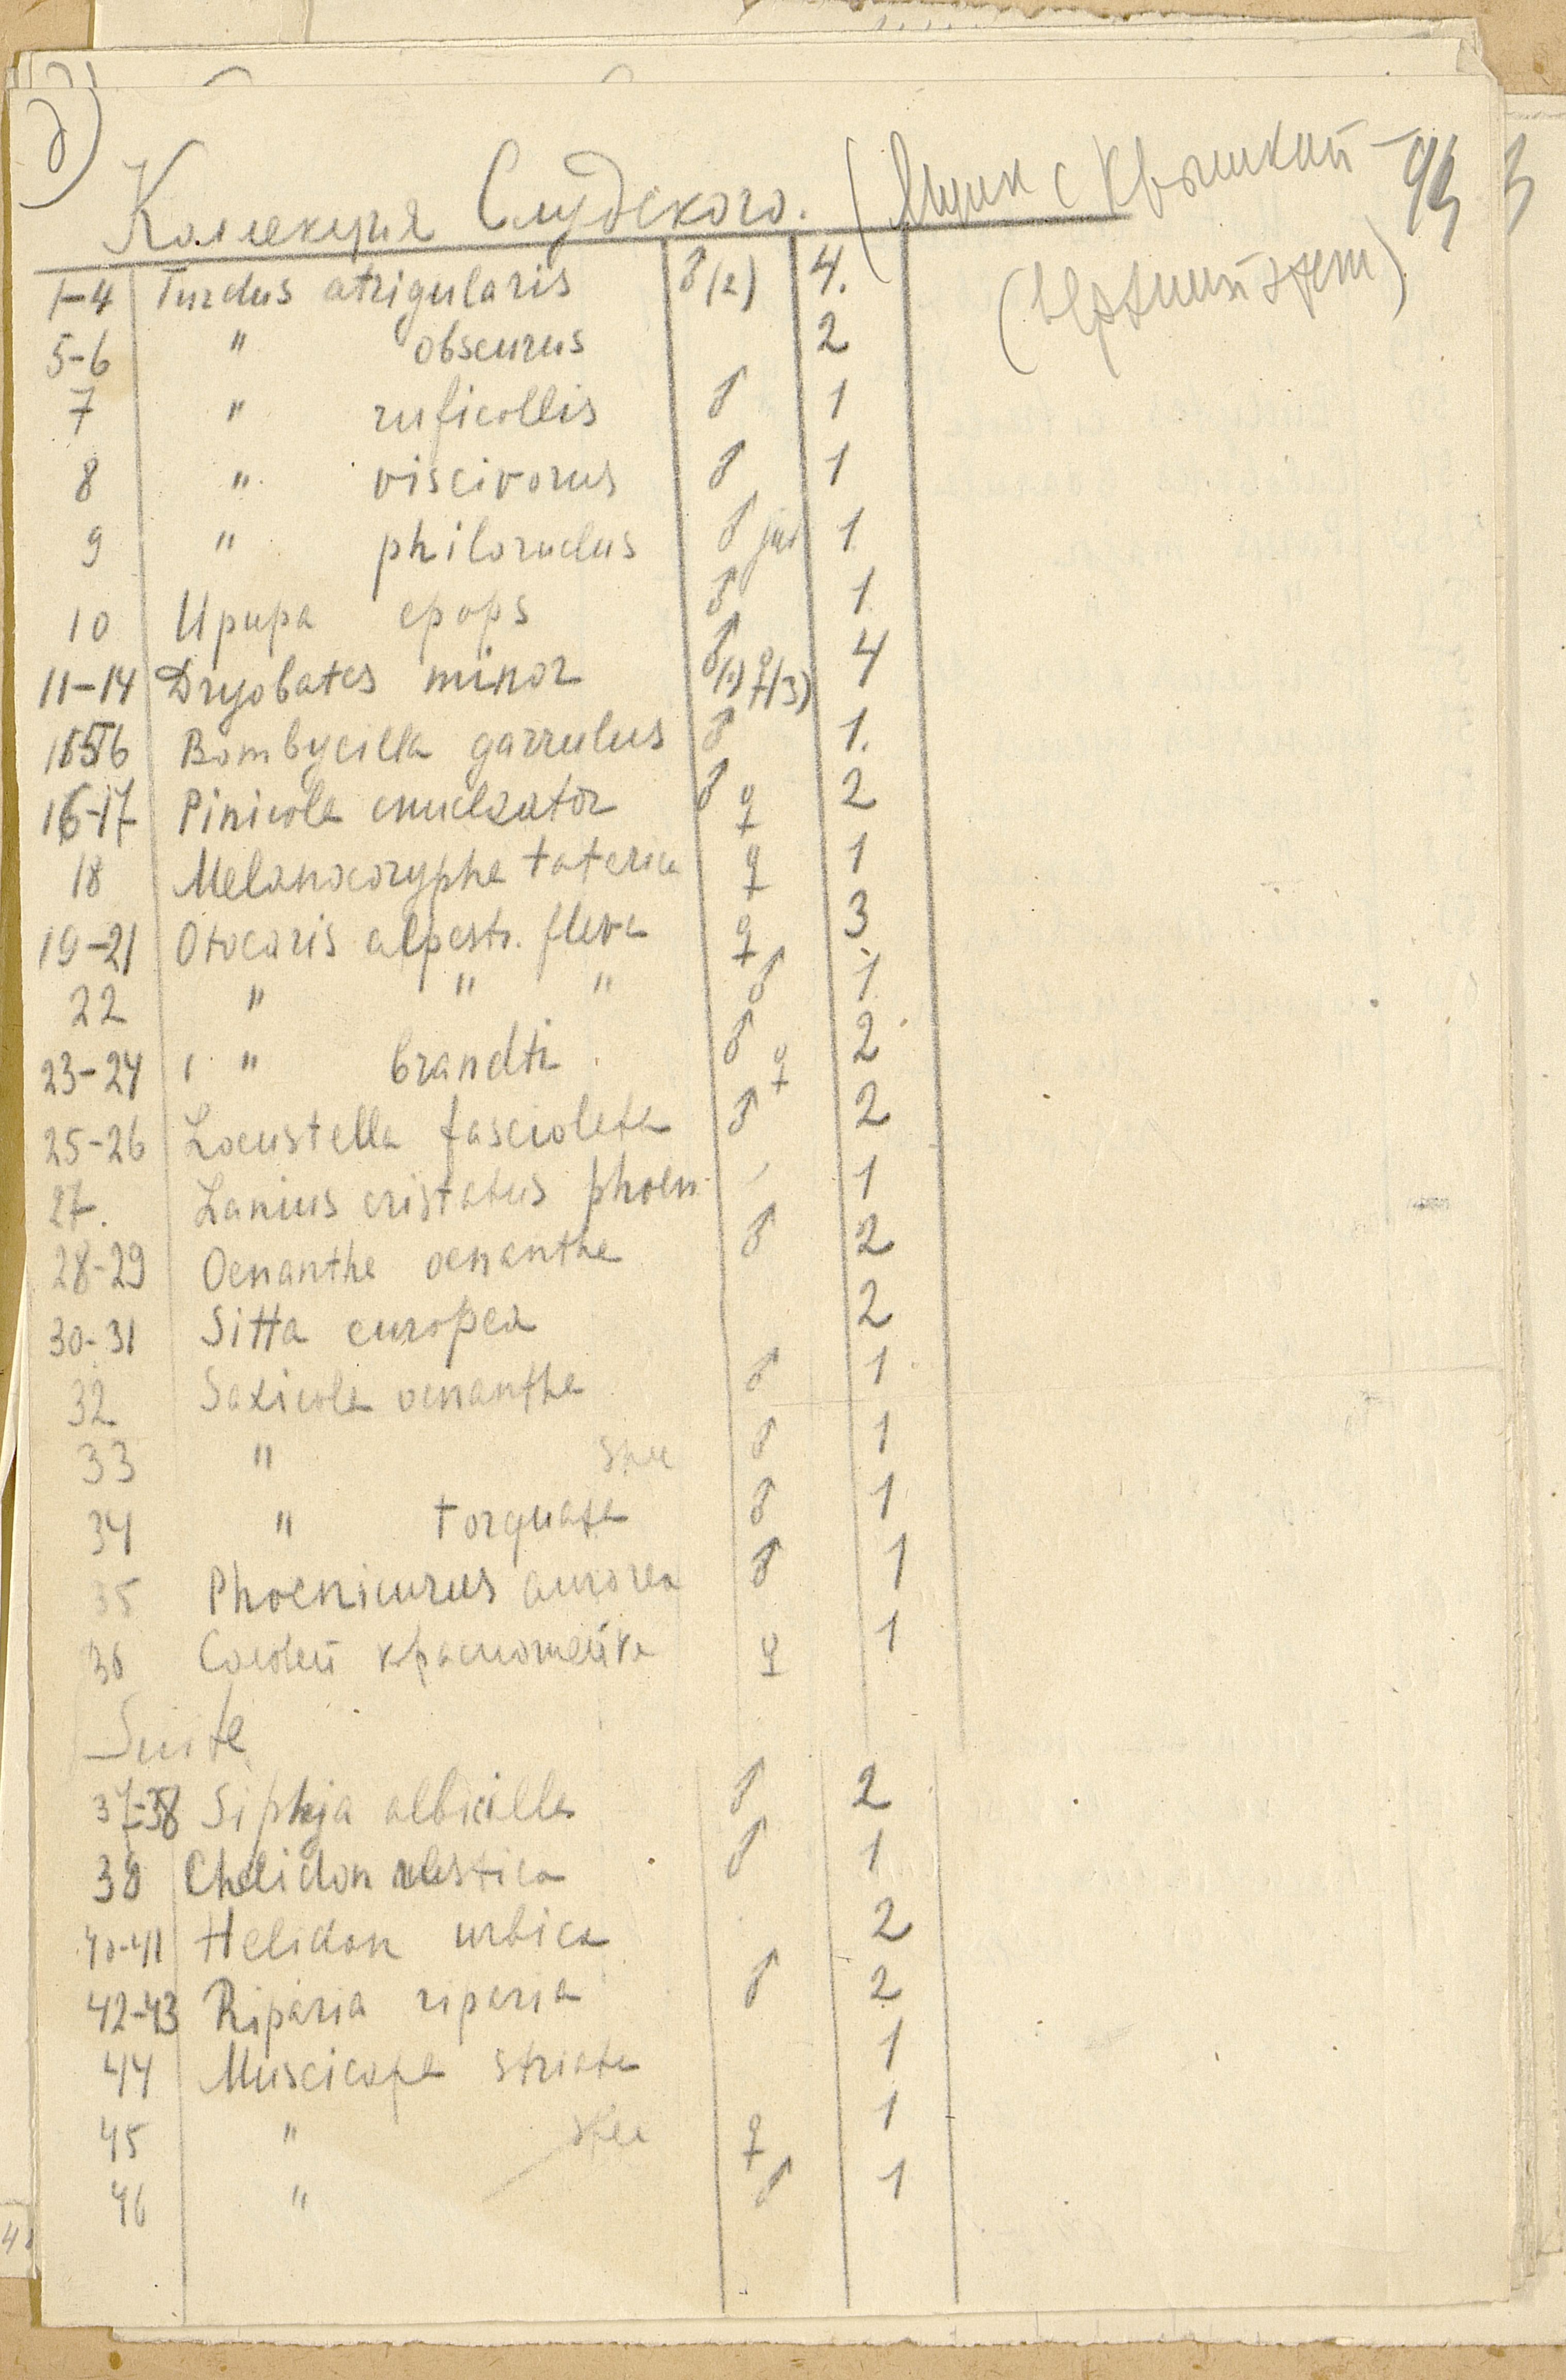 д)
Коллекция Слудского. (Ящик с крышкой
(верхний этаж)
1-4 Turdus atrigularis ♂(2) 4.
5-6 " obscurus 2
7 " ruficollis ♂ 1
8 " viscivorus ♂ 1
9 " philomelus ♂ juv 1
10 Upupa epops ♂ 1
11-14 Dryobates minor ♂(1) ♀(3) 4
15 Bombycilla garrulus ♂ 1.
16-17 Pinicola enucleator ♂ ♀ 2
18 Melanocorypha tatarica ♀ 1
19-21 Otocaris alpestr. flava ♀ 3
22 " " " ♂ 1
23-24 " brandti ♂ ♀ 2
25-26 Locustella fasciolata ♂ 2
27. Lanius cristatus phoen. 1
28-29 Oenanthe oenanthe ♂ 2
30-31 Sitta europea 2
32 Saxicola oenanthe ♂ 1
33 " ♂ 1
34 " torquata ♂ 1
35 Phoenicurus aurorea ♂ 1
36 Соловей красношейка ♀ 1
Suite
37-38 Siphja albicilla ♂ 2
39 Chelidon rustica ♂ 1
40-41 Helidon urbica 2
42-43 Riparia riparia ♂ 2
44 Muscicapa striata 1
45 " ♀ 1
46 " ♂ 1